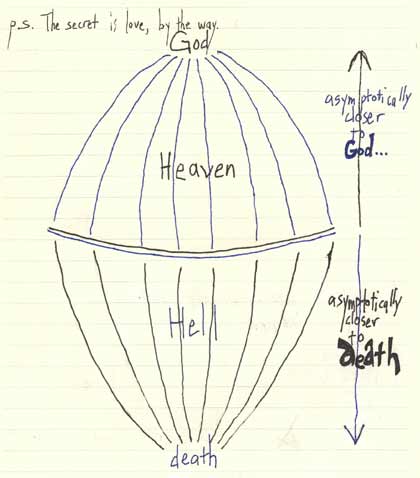 p.s. The secret is love, by the way.
God
asymptotically
closer
to
God...
Heaven
Hell
asymptotically
closer
to
death
death